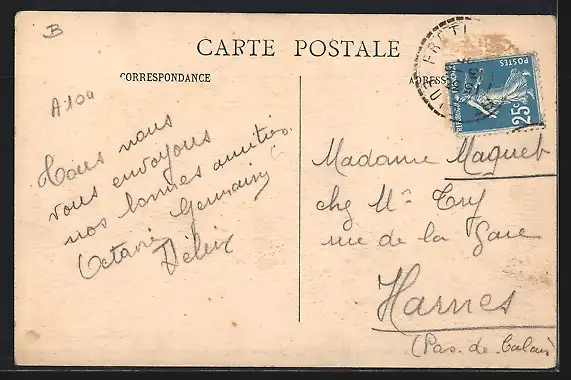 B
CARTE POSTALE
CORRESPONDANCE
ADRESSE
A 10a
POSTES
25c
Nous nous
vous envoyons
nos bonnes amitiés
Octavie Germaine
Madame Maquet
chez Mr
rue de la Gare
Harnes
(Pas-de-Calais)